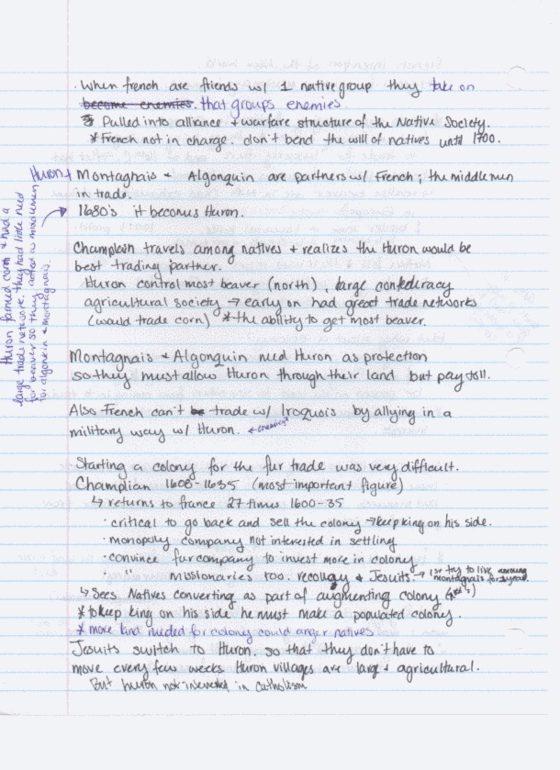 · when french are friends w/ 1 native group they take on
become enemies. that groups enemies.
Pulled into alliance + warfare structure of the Native Society.
* French not in charge. don't bend the will of natives until 1700.
Huron+ Montagnais + Algonquin are partners w/ French; the middle men
in trade.
→ 1680's it becomes Huron.
Huron farmed corn + had a
large trade network. they had little need
for beaver so they acted as middlemen
for algonkin + montagnais.
Champlain travels among natives + realizes the Huron would be
best trading partner.
Huron control most beaver (north), large confederacy
agricultural society → early on had great trade networks
(would trade corn) * the ability to get most beaver.
Montagnais + Algonquin need Huron as protection
so they must allow Huron through their land but pay toll.
Also French can't be trade w/ Iroquois by allying in a
military way w/ Huron. ← enemies
Starting a colony for the fur trade was very difficult.
Champlian 1600-1635 (most important figure)
↳ returns to france 27 times 1600-35
· critical to go back and sell the colony → keep king on his side.
· monopoly company not interested in settling
· convince fur company to invest more in colony
· " missionaries too. recollay + Jesuits. → 1st try to live among
montagnais for 1 year.
↳ Sees Natives converting as part of augmenting colony
* to keep king on his side he must make a populated colony.
* more land needed for colony could anger natives
Jesuits switch to Huron, so that they don't have to
move every few weeks Huron villages are large + agricultural.
But huron not interested in Catholism